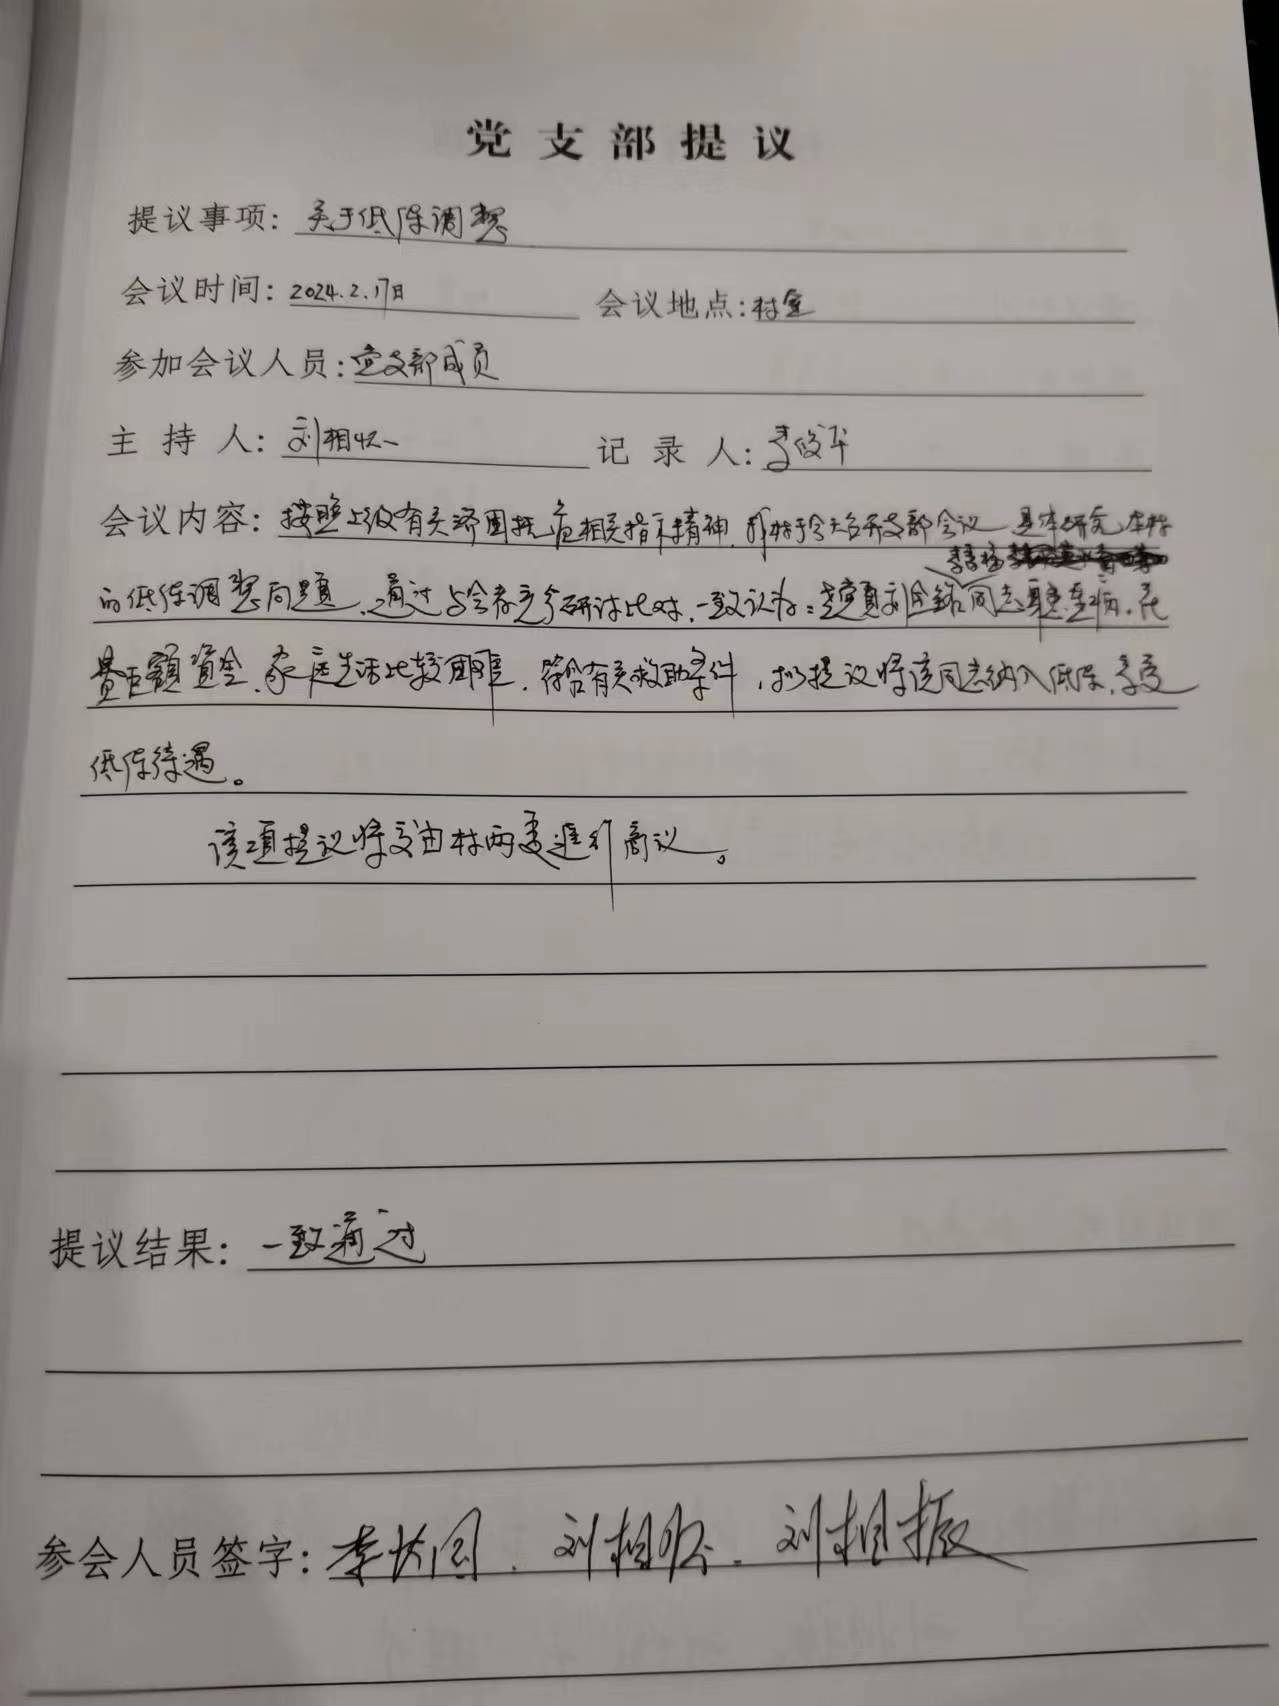 党支部提议
提议事项: 关于低保调整
会议时间: 2024.2.17日 会议地点: 村室
参加会议人员: 党支部成员
主 持 人: 刘相 记 录 人: 李俊平
会议内容: 按照上级有关济困扶危相关指示精神，我村于今天召开支部会议，具体研究本村
的低保调整问题，通过与会者充分研讨比对，一致认为：老党员刘金铭同志罹患重病，花
费巨额资金，家庭生活比较困难，符合有关救助条件，拟提议将该同志纳入低保，享受
低保待遇。
该项提议将交由村两委进行商议。
提议结果: 一致通过
参会人员签字: 李 刘相 . 刘相振